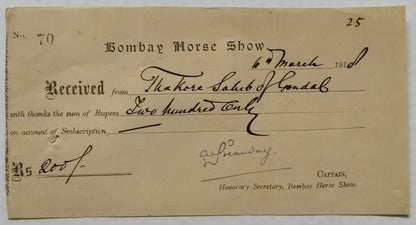 25
No. 70
Bombay Horse Show.
6th March 1918
Received from Thakore Saheb of Gondal
with thanks the sum of Rupees Two hundred Only
on account of Subscription
Rs 200/-
CAPTAIN,
Honorary Secretary, Bombay Horse Show.